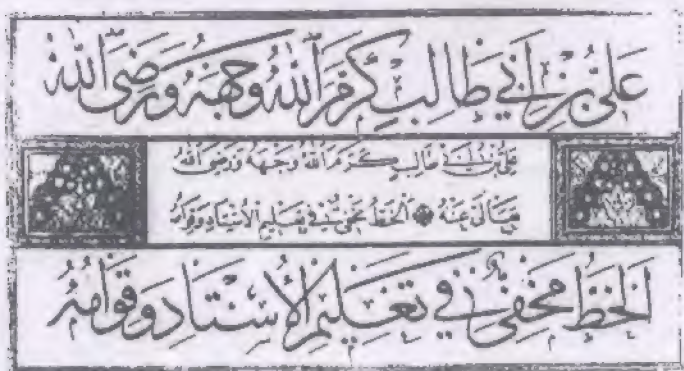 عَلِيُّ بْنُ اَبِي طَالِبٍ كَرَّمَ اللهُ وَجْهَهُ وَرَضِيَ اللهُ
عَلِيُّ بْنُ اَبِي طَالِبٍ كَرَّمَ اللهُ وَجْهَهُ وَرَضِيَ اللهُ
تَعَالَى عَنْهُ اَلْخَطُّ مَخْفِيٌّ فِي تَعْلِيمِ الْاُسْتَادِ وَقِوَامُهُ
اَلْخَطُّ مَخْفِيٌّ فِي تَعْلِيمِ الْاُسْتَادِ وَقِوَامُهُ